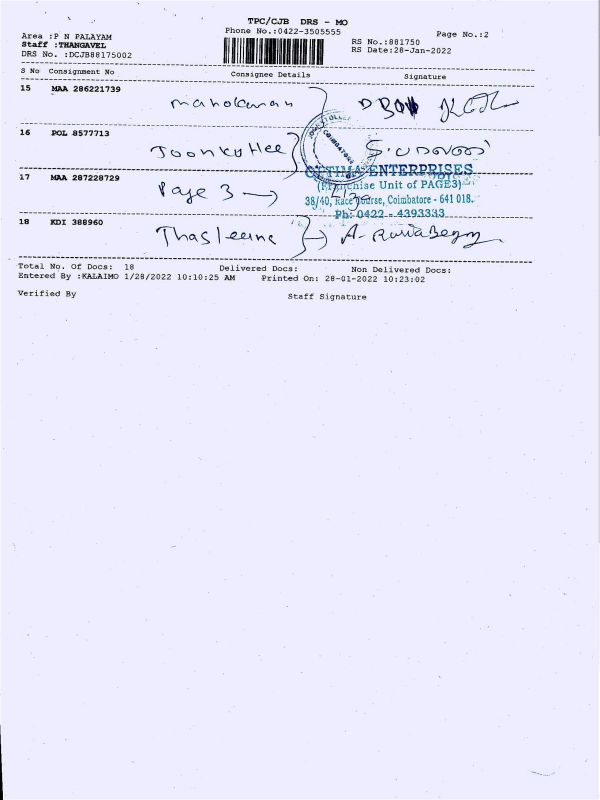 TPC/CJB DRS - MO
Phone No.:0422-3505555
Page No.:2
Area :P N PALAYAM
Staff :THANGAVEL
DRS No. :DCJB88175002
RS No.:881750
RS Date:28-Jan-2022
S No Consignment No Consignee Details Signature
15 MAA 286221739
manokaran
16 POL 8577713
17 MAA 287228729
Page 3
ENTERPRISES
(Franchise Unit of PAGE3)
38/40, Race Course, Coimbatore - 641 018.
Ph: 0422 - 4393333
18 KDI 388960
Thasleema
Total No. Of Docs: 18 Delivered Docs: Non Delivered Docs:
Entered By :KALAIMO 1/28/2022 10:10:25 AM Printed On: 28-01-2022 10:23:02
Verified By Staff Signature